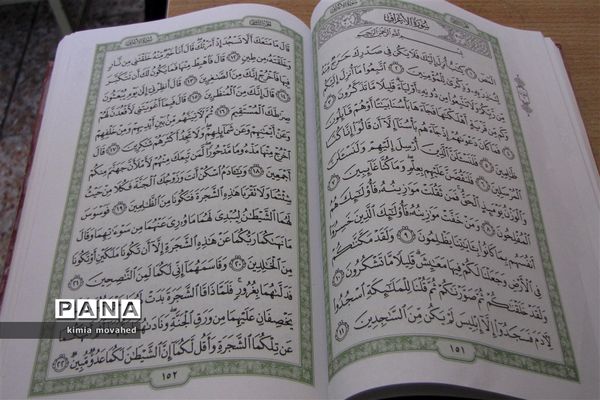 سُورَةُ الْأَعْرَافِ
بِسْمِ اللَّهِ الرَّحْمَٰنِ الرَّحِيمِ
الٓمٓصٓ ١ كِتَٰبٌ أُنزِلَ إِلَيْكَ فَلَا يَكُن فِي صَدْرِكَ حَرَجٌ مِّنْهُ
لِتُنذِرَ بِهِۦ وَذِكْرَىٰ لِلْمُؤْمِنِينَ ٢ ٱتَّبِعُوا۟ مَآ أُنزِلَ إِلَيْكُم
مِّن رَّبِّكُمْ وَلَا تَتَّبِعُوا۟ مِن دُونِهِۦٓ أَوْلِيَآءَ قَلِيلًا مَّا تَذَكَّرُونَ ٣
وَكَم مِّن قَرْيَةٍ أَهْلَكْنَٰهَا فَجَآءَهَا بَأْسُنَا بَيَٰتًا أَوْ هُمْ قَآئِلُونَ
٤ فَمَا كَانَ دَعْوَىٰهُمْ إِذْ جَآءَهُم بَأْسُنَآ إِلَّآ أَن قَالُوٓا۟ إِنَّا كُنَّا
ظَٰلِمِينَ ٥ فَلَنَسْـَٔلَنَّ ٱلَّذِينَ أُرْسِلَ إِلَيْهِمْ وَلَنَسْـَٔلَنَّ
ٱلْمُرْسَلِينَ ٦ فَلَنَقُصَّنَّ عَلَيْهِم بِعِلْمٍ وَمَا كُنَّا غَآئِبِينَ ٧
وَٱلْوَزْنُ يَوْمَئِذٍ ٱلْحَقُّ فَمَن ثَقُلَتْ مَوَٰزِينُهُۥ فَأُو۟لَٰٓئِكَ هُمُ
ٱلْمُفْلِحُونَ ٨ وَمَنْ خَفَّتْ مَوَٰزِينُهُۥ فَأُو۟لَٰٓئِكَ ٱلَّذِينَ خَسِرُوٓا۟
أَنفُسَهُم بِمَا كَانُوا۟ بِـَٔايَٰتِنَا يَظْلِمُونَ ٩ وَلَقَدْ مَكَّنَّٰكُمْ
فِي ٱلْأَرْضِ وَجَعَلْنَا لَكُمْ فِيهَا مَعَٰيِشَ قَلِيلًا مَّا تَشْكُرُونَ ١٠
وَلَقَدْ خَلَقْنَٰكُمْ ثُمَّ صَوَّرْنَٰكُمْ ثُمَّ قُلْنَا لِلْمَلَٰٓئِكَةِ ٱسْجُدُوا۟
لِـَٔادَمَ فَسَجَدُوٓا۟ إِلَّآ إِبْلِيسَ لَمْ يَكُن مِّنَ ٱلسَّٰجِدِينَ ١١
١٥١
قَالَ مَا مَنَعَكَ أَلَّا تَسْجُدَ إِذْ أَمَرْتُكَ قَالَ أَنَا۠ خَيْرٌ مِّنْهُ خَلَقْتَنِي مِن نَّارٍ
وَخَلَقْتَهُۥ مِن طِينٍ ١٢ قَالَ فَٱهْبِطْ مِنْهَا فَمَا يَكُونُ لَكَ أَن تَتَكَبَّرَ
فِيهَا فَٱخْرُجْ إِنَّكَ مِنَ ٱلصَّٰغِرِينَ ١٣ قَالَ أَنظِرْنِيٓ إِلَىٰ يَوْمِ يُبْعَثُونَ
١٤ قَالَ إِنَّكَ مِنَ ٱلْمُنظَرِينَ ١٥ قَالَ فَبِمَآ أَغْوَيْتَنِي لَأَقْعُدَنَّ لَهُمْ
صِرَٰطَكَ ٱلْمُسْتَقِيمَ ١٦ ثُمَّ لَـَٔاتِيَنَّهُم مِّنۢ بَيْنِ أَيْدِيهِمْ وَمِنْ خَلْفِهِمْ
وَعَنْ أَيْمَٰنِهِمْ وَعَن شَمَآئِلِهِمْ وَلَا تَجِدُ أَكْثَرَهُمْ شَٰكِرِينَ ١٧ قَالَ
ٱخْرُجْ مِنْهَا مَذْءُومًا مَّدْحُورًا لَّمَن تَبِعَكَ مِنْهُمْ لَأَمْلَأَنَّ جَهَنَّمَ مِنكُمْ
أَجْمَعِينَ ١٨ وَيَٰٓـَٔادَمُ ٱسْكُنْ أَنتَ وَزَوْجُكَ ٱلْجَنَّةَ فَكُلَا مِنْ حَيْثُ
شِئْتُمَا وَلَا تَقْرَبَا هَٰذِهِ ٱلشَّجَرَةَ فَتَكُونَا مِنَ ٱلظَّٰلِمِينَ ١٩ فَوَسْوَسَ
لَهُمَا ٱلشَّيْطَٰنُ لِيُبْدِيَ لَهُمَا مَا وُۥرِيَ عَنْهُمَا مِن سَوْءَٰتِهِمَا وَقَالَ
مَا نَهَىٰكُمَا رَبُّكُمَا عَنْ هَٰذِهِ ٱلشَّجَرَةِ إِلَّآ أَن تَكُونَا مَلَكَيْنِ أَوْ تَكُونَا
مِنَ ٱلْخَٰلِدِينَ ٢٠ وَقَاسَمَهُمَآ إِنِّي لَكُمَا لَمِنَ ٱلنَّٰصِحِينَ ٢١
فَدَلَّىٰهُمَا بِغُرُورٍ فَلَمَّا ذَاقَا ٱلشَّجَرَةَ بَدَتْ
يَخْصِفَانِ عَلَيْهِمَا مِن وَرَقِ ٱلْجَنَّةِ وَنَادَىٰهُمَا
عَن تِلْكُمَا ٱلشَّجَرَةِ وَأَقُل لَّكُمَآ إِنَّ ٱلشَّيْطَٰنَ لَكُمَا عَدُوٌّ مُّبِينٌ ٢٢
١٥٢
PANA
kimia movahed